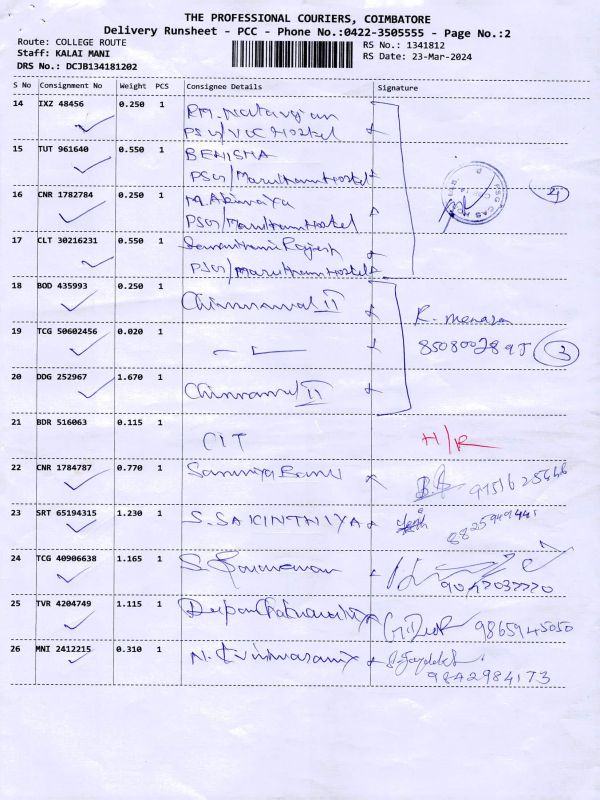 THE PROFESSIONAL COURIERS, COIMBATORE
Delivery Runsheet - PCC - Phone No.:0422-3505555 - Page No.:2
Route: COLLEGE ROUTE
RS No.: 1341812
Staff: KALAI MANI
RS Date: 23-Mar-2024
DRS No.: DCJB134181202
S No Consignment No Weight PCS Consignee Details Signature
14 IXZ 48456 0.250 1
Hostel
15 TUT 961640 0.550 1 BENISMA
PSG/Marutham Hostel
16 CNR 1782784 0.250 1 M.Abinaya
PSG/Marutham Hostel
4
17 CLT 30216231 0.550 1
PSG/Marutham Hostel
18 BOD 435993 0.250 1 Chinnamal II
19 TCG 50602456 0.020 1
3
20 DDG 252967 1.670 1 Chinnamal II
21 BDR 516063 0.115 1 CIT H/R
22 CNR 1784787 0.770 1
23 SRT 65194315 1.230 1 S.SAKINTHIYA
24 TCG 40906638 1.165 1 S.
9047037770
25 TVR 4204749 1.115 1
9865945050
26 MNI 2412215 0.310 1 N.
9842984173